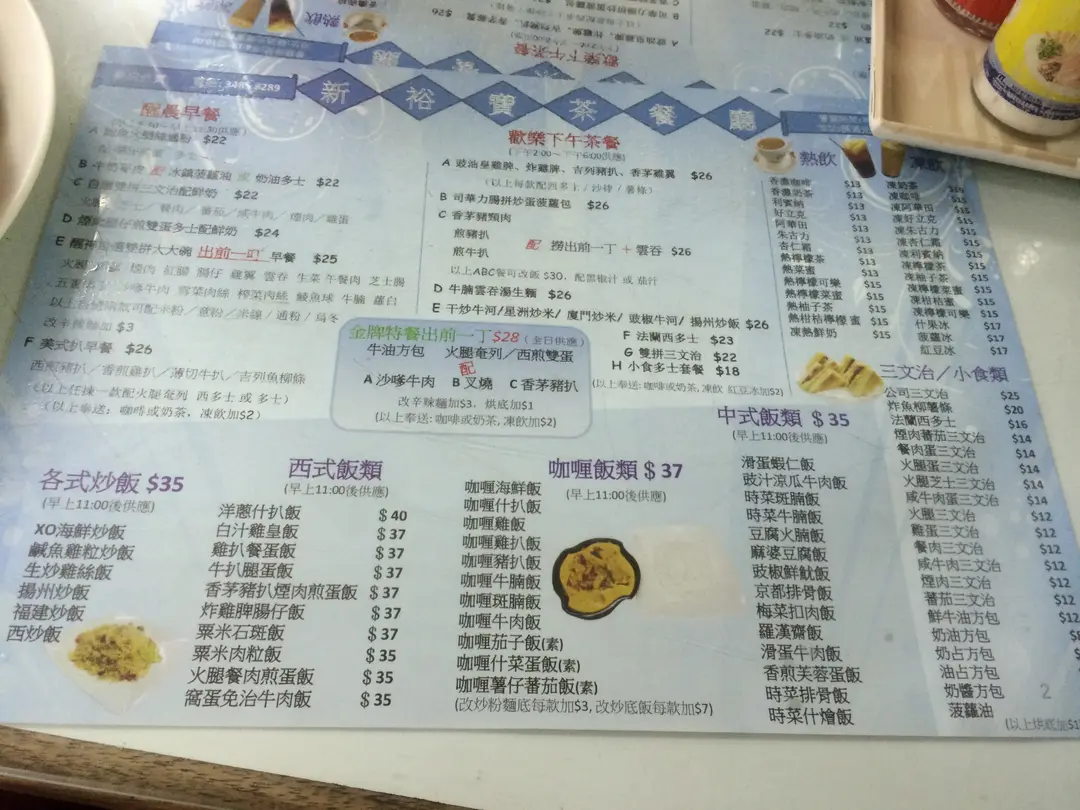 熱飲
歡樂下午茶餐
新裕寶茶餐廳
醒晨早餐
$22
B 牛奶麥皮 配 冰鎮菠蘿油 或 奶油多士 $22
C 自選雙拼三文治配鮮奶 $22
D 煙肉腸仔煎雙蛋多士配鮮奶 $24
出前一叮 早餐 $25
改辛辣麵加 $3
F 美式扒早餐 $26
西煎豬扒／香煎雞扒／薄切牛扒／吉列魚柳條
(以上任揀一款配火腿奄列 西多士 或 多士)
(以上奉送: 咖啡或奶茶, 凍飲加$2)
歡樂下午茶餐
(下午2:00～下午6:00供應)
A 豉油皇雞髀、炸雞髀、吉列豬扒、香茅雞翼 $26
(以上每款配西多士 / 沙律 / 薯條)
B 司華力腸拼炒蛋菠蘿包 $26
C 香茅豬頸肉
煎豬扒 配 撈出前一丁 + 雲吞 $26
煎牛扒
以上ABC餐可改飯 $30, 配黑椒汁 或 茄汁
D 牛腩雲吞湯生麵 $26
E 干炒牛河/星洲炒米/ 廈門炒米/ 豉椒牛河/ 揚州炒飯 $26
F 法蘭西多士 $23
G 雙拼三文治 $22
H 小食多士套餐 $18
(以上奉送: 咖啡或奶茶, 凍飲 紅豆冰加$2)
金牌特餐出前一丁$28 (全日供應)
牛油方包 火腿奄列／西煎雙蛋
配
A 沙嗲牛肉 B 叉燒 C 香茅豬扒
改辛辣麵加$3, 烘底加$1
(以上奉送: 咖啡或奶茶, 凍飲加$2)
熱飲
香濃咖啡 $13
香濃奶茶 $13
利賓納 $13
好立克 $13
阿華田 $13
朱古力 $13
杏仁霜 $13
熱檸檬茶 $13
熱菜蜜 $13
熱檸檬可樂 $15
熱檸檬菜蜜 $15
熱柚子茶 $15
熱柑桔檸檬蜜 $15
凍熱鮮奶 $15
凍飲
凍奶茶
凍咖啡 $15
凍阿華田 $15
凍好立克 $15
凍朱古力 $15
凍杏仁霜 $15
凍利賓納 $15
凍檸檬茶 $15
凍柚子茶 $15
凍檸檬菜蜜 $15
凍柑桔蜜 $15
凍檸檬可樂 $15
什果冰 $17
菠蘿冰 $17
紅豆冰 $17
三文治／小食類
公司三文治 $25
炸魚柳薯條 $20
法蘭西多士 $16
煙肉蕃茄三文治 $14
餐肉蛋三文治 $14
火腿蛋三文治 $14
火腿芝士三文治 $14
咸牛肉蛋三文治 $14
火腿三文治 $12
雞蛋三文治 $12
餐肉三文治 $12
咸牛肉三文治 $12
煙肉三文治 $12
蕃茄三文治 $12
鮮牛油方包
奶油方包
奶占方包
油占方包
奶醬方包
菠蘿油
各式炒飯 $35
(早上11:00後供應)
XO海鮮炒飯
鹹魚雞粒炒飯
生炒雞絲飯
揚州炒飯
福建炒飯
西炒飯
西式飯類
(早上11:00後供應)
洋蔥什扒飯 $40
白汁雞皇飯 $37
雞扒餐蛋飯 $37
牛扒腿蛋飯 $37
香茅豬扒煙肉煎蛋飯 $37
炸雞髀腸仔飯 $37
粟米石斑飯 $37
粟米肉粒飯 $35
火腿餐肉煎蛋飯 $35
窩蛋免治牛肉飯 $35
咖喱飯類 $37
(早上11:00後供應)
咖喱海鮮飯
咖喱什扒飯
咖喱雞飯
咖喱雞扒飯
咖喱豬扒飯
咖喱牛腩飯
咖喱斑腩飯
咖喱牛肉飯
咖喱茄子飯(素)
咖喱什菜蛋飯(素)
咖喱薯仔蕃茄飯(素)
(改炒粉麵底每款加$3, 改炒底飯每款加$7)
中式飯類 $35
(早上11:00後供應)
滑蛋蝦仁飯
豉汁涼瓜牛肉飯
時菜斑腩飯
時菜牛腩飯
豆腐火腩飯
麻婆豆腐飯
豉椒鮮魷飯
京都排骨飯
梅菜扣肉飯
羅漢齋飯
滑蛋牛肉飯
香煎芙蓉蛋飯
時菜排骨飯
時菜什燴飯
2